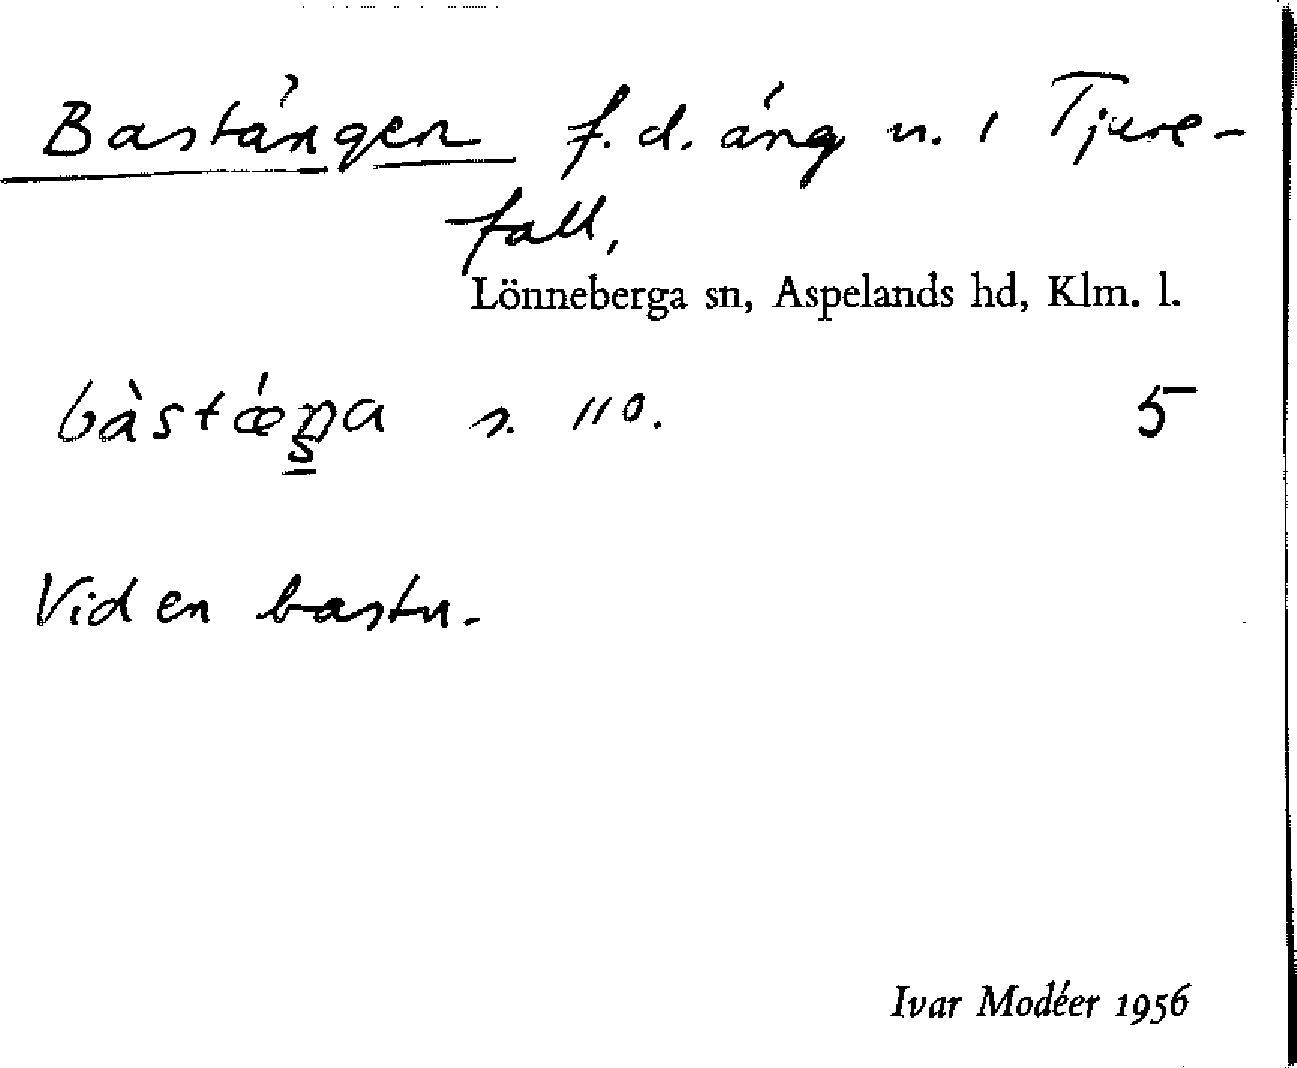 Bastängen f.d. äng n. i Tjure-
fall,
Lönneberga sn, Aspelands hd, Klm. l.
bàstǽŋa s. 110. 5
Vid en bastu.
Ivar Modéer 1956